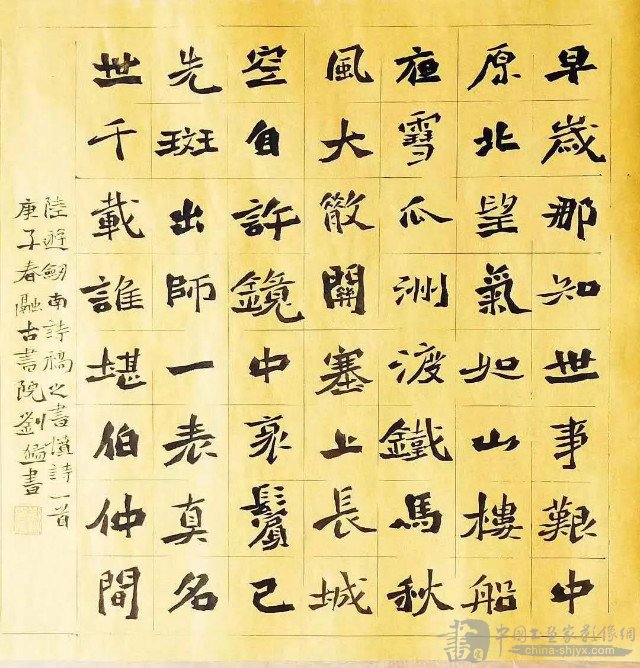 早歲那知世事艱中
原北望氣如山樓船
夜雪瓜洲渡鐵馬秋
風大散關塞上長城
空自許鏡中衰鬢已
先斑出師一表真名
世千載誰堪伯仲間
陸遊劒南詩稿之書憤詩一首
庚子春融古書院劉鑑書
china-shjyx.com